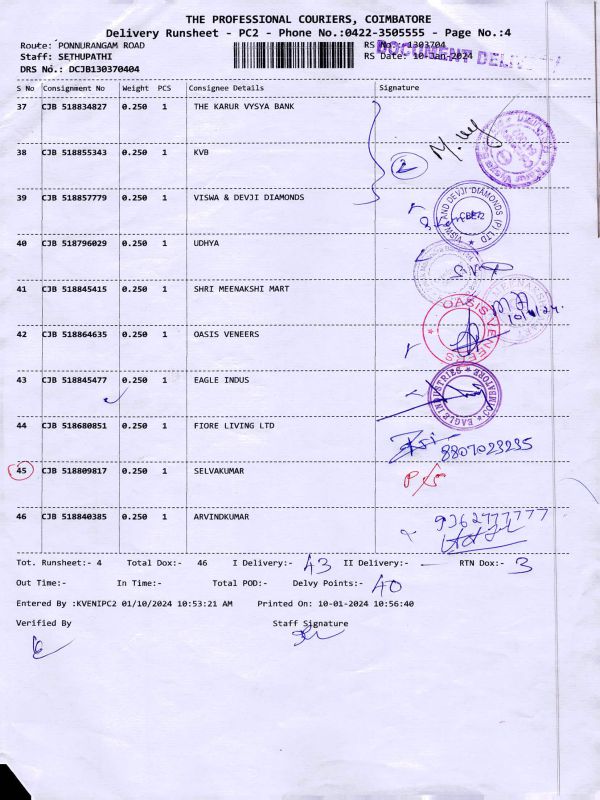 THE PROFESSIONAL COURIERS, COIMBATORE
Delivery Runsheet - PC2 - Phone No.:0422-3505555 - Page No.:4
Route: PONNURANGAM ROAD RS No.:1303704
Staff: SETHUPATHI RS Date: 10-Jan-2024
DRS No.: DCJB130370404
DOCUMENT DELIVERY
S No Consignment No Weight PCS Consignee Details Signature
37 CJB 518834827 0.250 1 THE KARUR VYSYA BANK
38 CJB 518855343 0.250 1 KVB
39 CJB 518857779 0.250 1 VISWA & DEVJI DIAMONDS
VISWA AND DEVJI DIAMONDS (P) LTD
40 CJB 518796029 0.250 1 UDHYA
41 CJB 518845415 0.250 1 SHRI MEENAKSHI MART
10/1/24.
42 CJB 518864635 0.250 1 OASIS VENEERS
OASIS VENEERS
43 CJB 518845477 0.250 1 EAGLE INDUS
EAGLE INDUSTRIES COIMBATORE
44 CJB 518680851 0.250 1 FIORE LIVING LTD
8807023235
45 CJB 518809817 0.250 1 SELVAKUMAR
46 CJB 518840385 0.250 1 ARVINDKUMAR
9362777777
Tot. Runsheet:- 4 Total Dox:- 46 I Delivery:- 43 II Delivery:- — RTN Dox:- 3
Out Time:- In Time:- Total POD:- Delvy Points:- 40
Entered By :KVENIPC2 01/10/2024 10:53:21 AM Printed On: 10-01-2024 10:56:40
Verified By Staff Signature